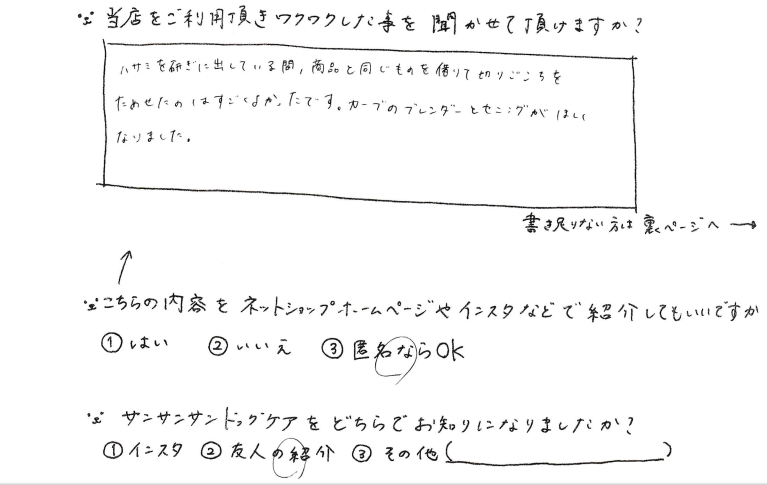 当店をご利用頂きワクワクした事を聞かせて頂けますか?
ハサミを研ぎに出している間,商品と同じものを借りて切りごこちを
ためせたのはすごくよかったです。カーブのブレンダーとセニングがほしく
なりました。
書き足りない方は裏ページへ→
↑
こちらの内容をネットショップホームページやインスタなどで紹介してもいいですか
①はい ②いいえ ③匿名ならOK
サンサンサンドッグケアをどちらでお知りになりましたか?
①インスタ ②友人の紹介 ③その他( )